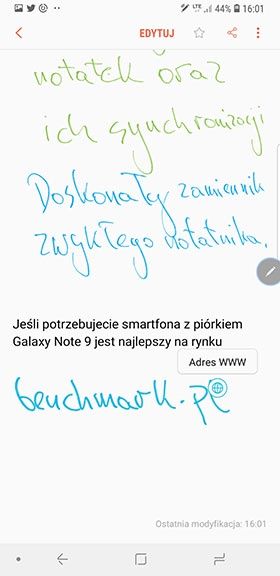 44% 16:01
EDYTUJ
notatek oraz
ich synchronizacji
Doskonały zamiennik
zwykłego notatnika.
Jeśli potrzebujecie smartfona z piórkiem
Galaxy Note 9 jest najlepszy na rynku
Adres WWW
benchmark.pl
Ostatnia modyfikacja: 16:01